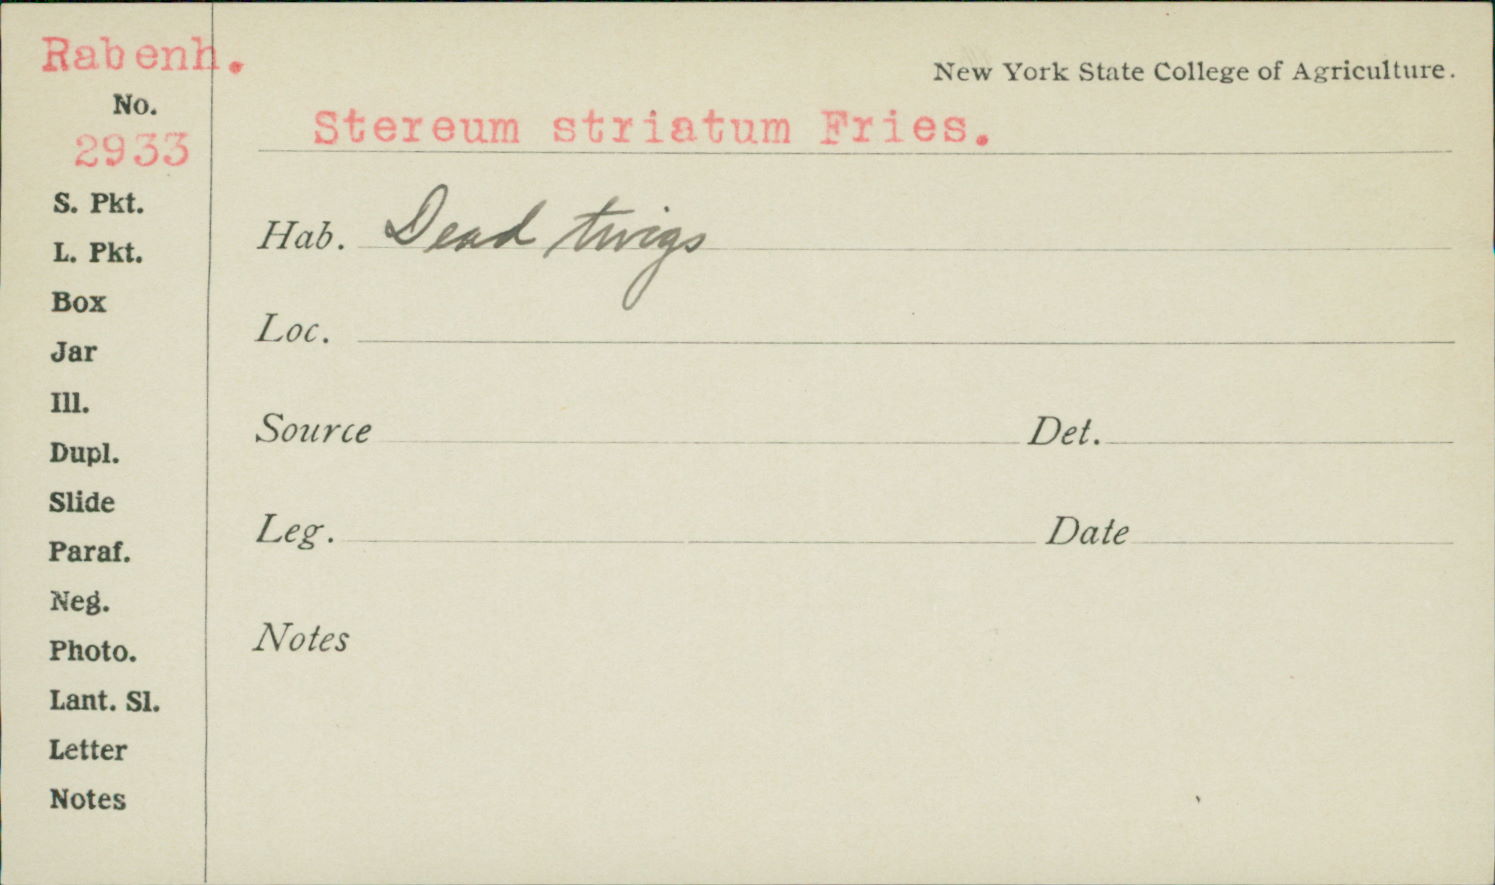 Rabenh.
New York State College of Agriculture.
No.
2933
Stereum striatum Fries.
S. Pkt.
L. Pkt.
Box
Jar
Ill.
Dupl.
Slide
Paraf.
Neg.
Photo.
Lant. Sl.
Letter
Notes
Hab. Dead twigs
Loc.
Source Det.
Leg. Date
Notes